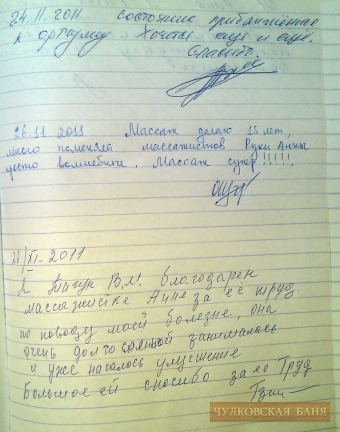 24.11.2011 состояние приближённое
к оргазму Хочется еще и ещё.
Спасибо.
26.11 2011 Массаж делаю 15 лет,
много поменяла массажистов Руки Анны
просто волшебные. Массаж супер!!!!!
/XI-2011
Я В.М. благодарен
массажистке Анне за её труд,
по поводу моей болезне, она
очень долго со мной занималась
и уже началось улучшение
Большое ей спосибо за ее Труд
ЧУЛКОВСКАЯ БАНЯ